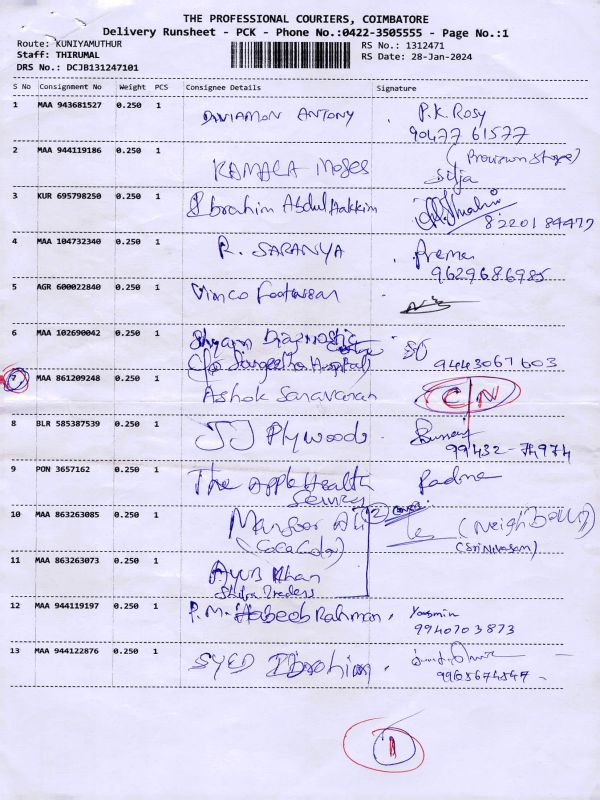 THE PROFESSIONAL COURIERS, COIMBATORE
Delivery Runsheet - PCK - Phone No.:0422-3505555 - Page No.:1
Route: KUNIYAMUTHUR RS No.: 1312471
Staff: THIRUMAL RS Date: 28-Jan-2024
DRS No.: DCJB131247101
S No Consignment No Weight PCS Consignee Details Signature
1 MAA 943681527 0.250 1 ANTONY P.K. Rosy
90477 61577
2 MAA 944119186 0.250 1 KAMALA Moses
3 KUR 695798250 0.250 1 Ibrahim Abdul Hakkim
8220184479
4 MAA 104732340 0.250 1 R. SARANYA Prema
9629686985
5 AGR 600022840 0.250 1 Vimco Footwear
6 MAA 102690042 0.250 1 Shyam Diagnostic
C/o Sangeetha Hospital) 9443067603
7 MAA 861209248 0.250 1 Ashok Saravanan CN
8 BLR 585387539 0.250 1 JJ Plywoods
99432-74974
9 PON 3657162 0.250 1 The Apple Health Padma
10 MAA 863263085 0.250 1 Mansoor Ali 2 (Neighbour)
(CocaCola) (Srinivasan)
11 MAA 863263073 0.250 1 Ayub Khan
Traders
12 MAA 944119197 0.250 1 P.M. Habeeb Rahman. Yasmin
9940703873
13 MAA 944122876 0.250 1 SYED Ibrohim
9965674547
1